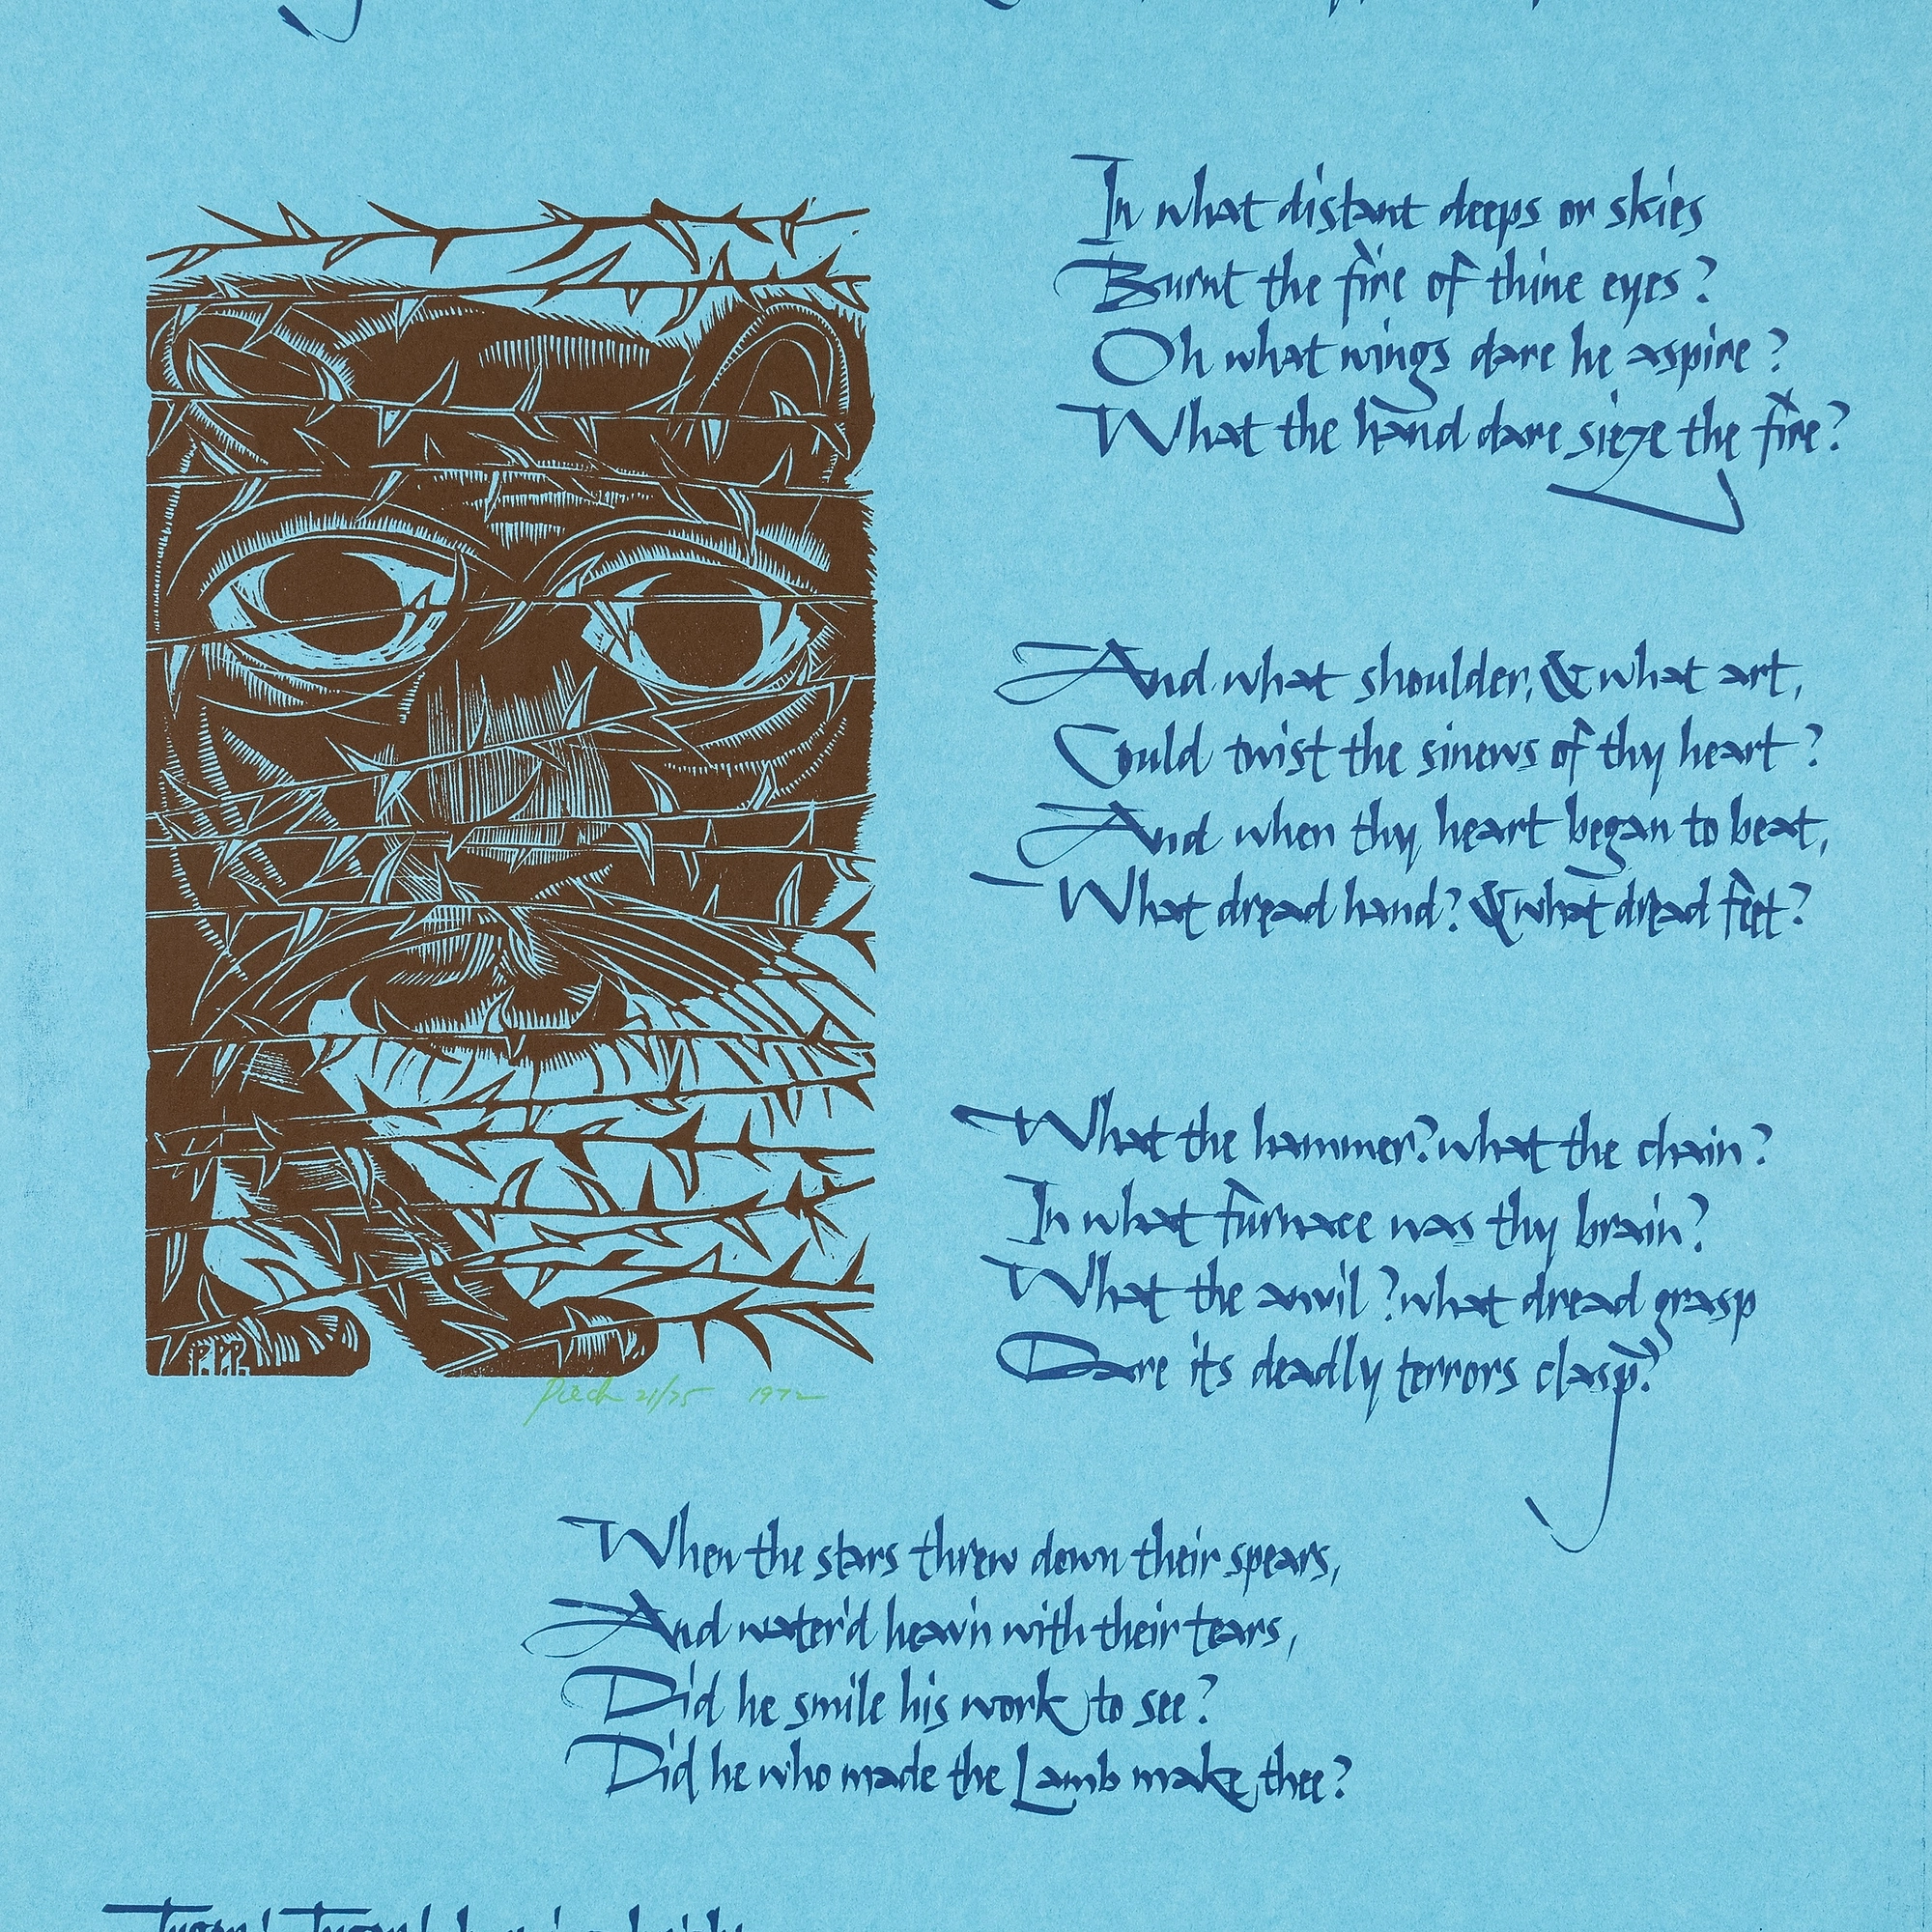 In what distant deeps or skies
Burnt the fire of thine eyes?
Oh what wings dare he aspire?
What the hand dare sieze the fire?
And what shoulder, & what art,
Could twist the sinews of thy heart?
And when thy heart began to beat,
What dread hand? & what dread feet?
What the hammer? what the chain?
In what furnace was thy brain?
What the anvil? what dread grasp
Dare its deadly terrors clasp?
P.PP.
Piech 21/75 1972
When the stars threw down their spears,
And water'd heav'n with their tears,
Did he smile his work to see?
Did he who made the Lamb make thee?